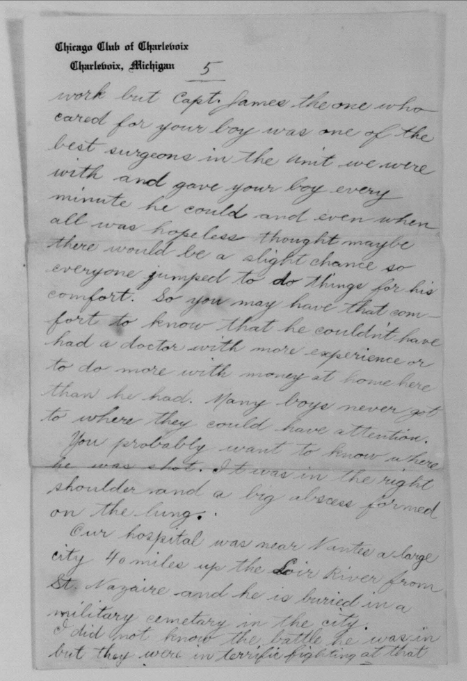 Chicago Club of Charlevoix
Charlevoix, Michigan
5
work but Capt. James the one who
cared for your boy was one of the
best surgeons in the unit we were
with and gave your boy every
minute he could and even when
all was hopeless thought maybe
there would be a slight chance so
everyone jumped to do things for his
comfort. So you may have that com-
fort to know that he couldn't have
had a doctor with more experience or
to do more with money at home here
than he had. Many boys never got
to where they could have attention.
You probably want to know where
he was shot. It was in the right
shoulder and a big abscess formed
on the lung.
Our hospital was near Nantes a large
city 40 miles up the Loir River from
St. Nazaire and he is buried in a
military cemetary in the city.
I did not know the battle he was in
but they were in terrific fighting at that